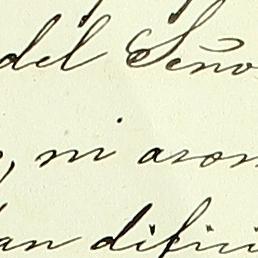 del Seño
, ni ason
an difici